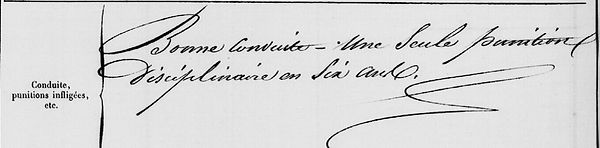 Bonne Conduite - Une Seule punition
Disciplinaire en Six ans.
Conduite,
punitions infligées,
etc.